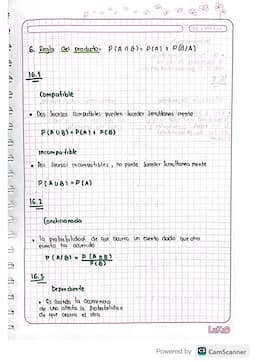 6. Regla del producto: P(A∩B)= P(A) x P(B/A)
16.1
Compatible
• Dos sucesos compatibles pueden suceder simultanea mente
P(A∪B)= P(A)+ P(B)
incompatible
• Dos sucesos incompatibles, no puede suceder simultanea mente
P(A∪B) = P(A)
16.2
Condicionada
• la probabilidad de que ocurra un evento dado que otro
evento ha ocurrido
P(A/B) = P(A∩B)
P(B)
16.3
Dependiente
• Es cuando la ocurrencia
de uno afecta la probabilidad
de que ocurra el otro
Powered by CS CamScanner